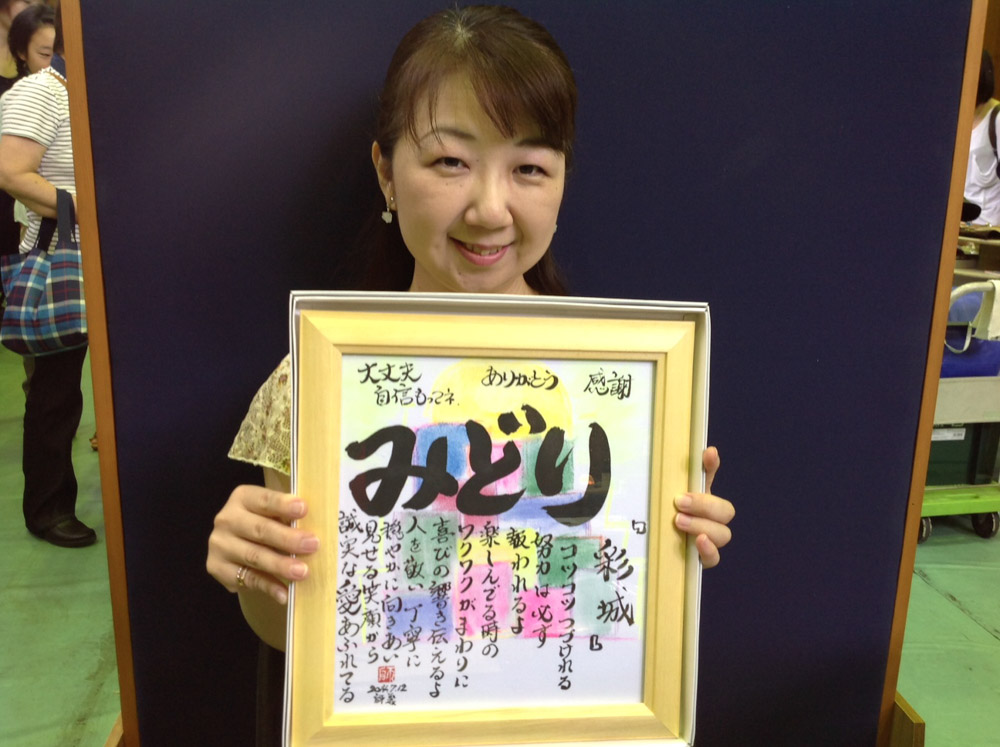 大丈夫
自信もってネ.
ありがとう
感謝
みどり
『彩城』
コツコツつづけれる
努力は必ず
報われるよ
楽しんでる時の
ワクワクがまわりに
喜びの響き伝えるよ
人を敬い 丁寧に
穏やかに向きあい
見せる笑顔から
誠実な愛あふれてる
2014.7.12